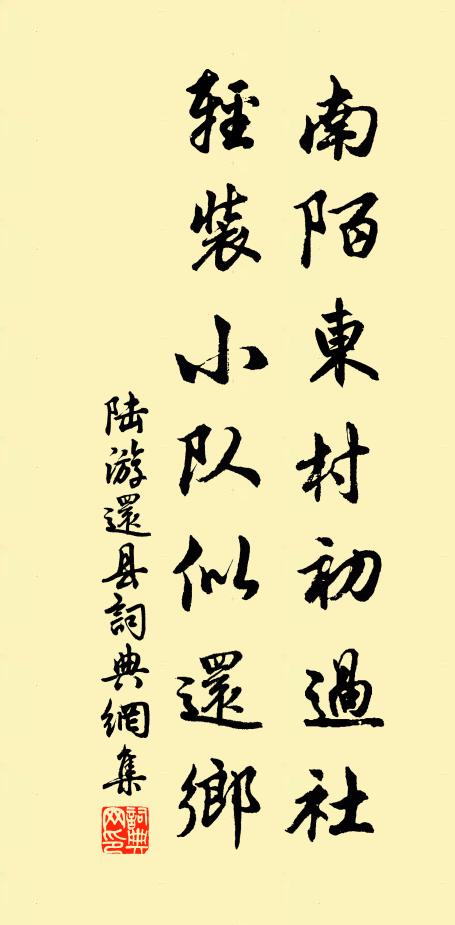 南陌東村初過社
輕裝小队似還鄉
陆游還县詞典網集
詞典网印